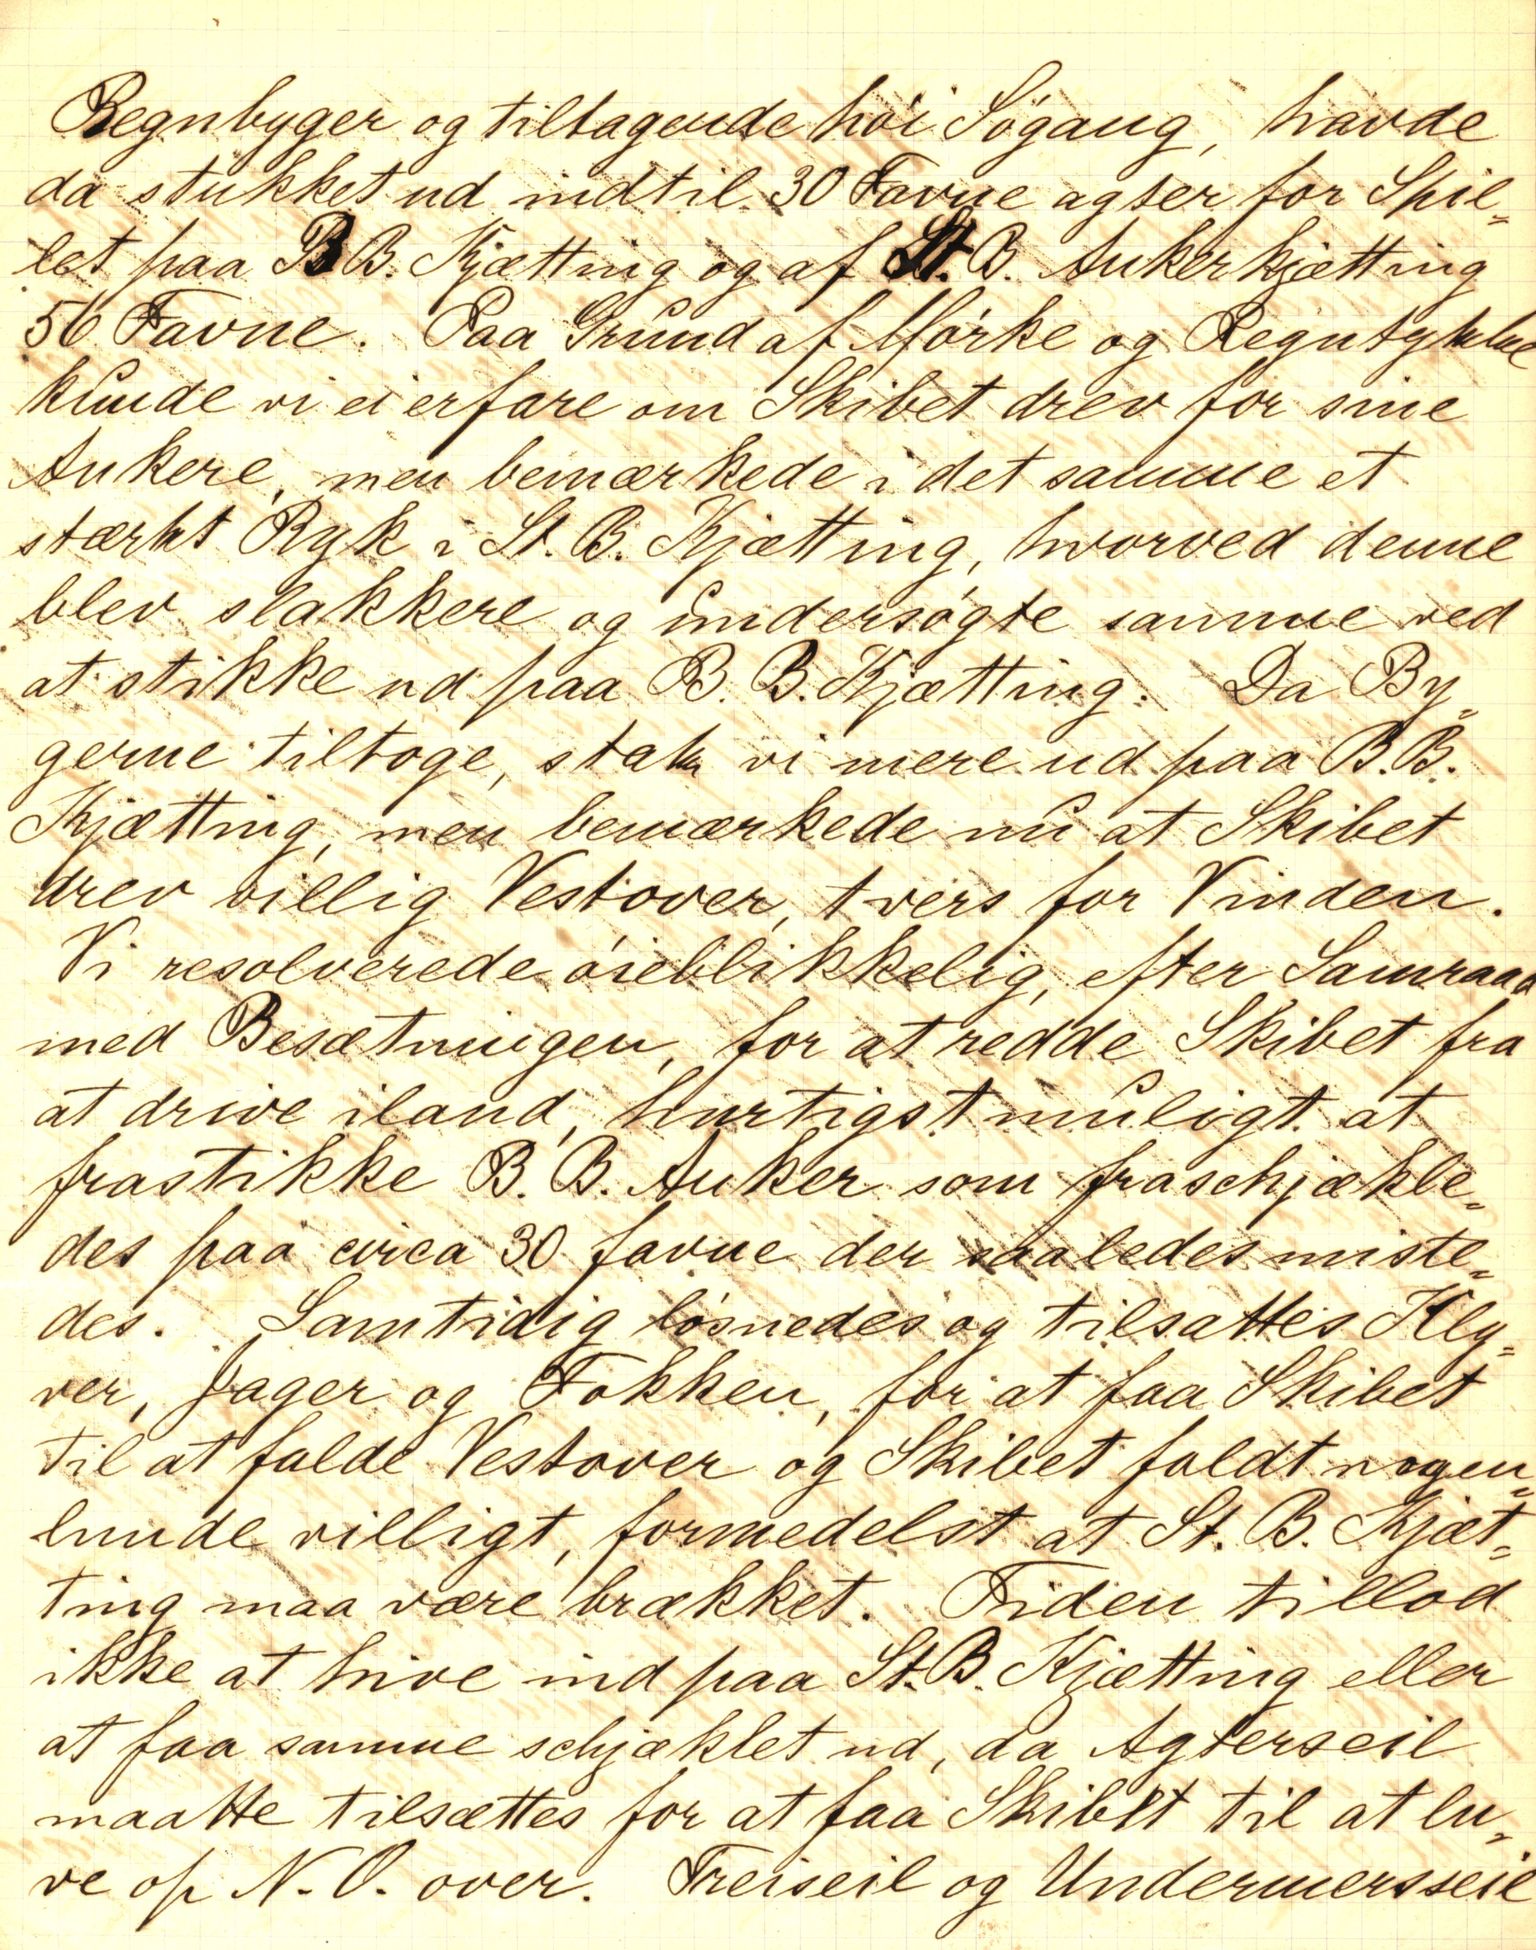 Regnbyger og tiltagende høi Søgang, havde
da stukket ud indtil 30 Favne agter for Spil-
let paa B B. Kjætting og af St. B. Ankerkjætting
56 Favne. Paa Grund af Mørke og Regntykke
kunde vi ei erfare om Skibet drev for sine
Ankere, men bemærkede i det samme et
stærkt Ryk i St. B. Kjætting, hvorved denne
blev slakkere og undersøgte samme ved
at stikke ud paa B. B. Kjætting. Da By-
gerne tiltoge, stak vi mere ud paa B. B.
Kjætting, men bemærkede nu at Skibet
drev villig Vestover, tvers for Vinden.
Vi resolverede øieblikkelig, efter Samraad
med Besætningen, for at redde Skibet fra
at drive iland, hurtigst muligt at
frastikke B. B. Anker som fraschjækle-
des paa circa 30 favne der saaledes miste-
des. Samtidig løsnedes og tilsattes Kly-
ver, Jager og Fokken, for at faa Skibet
til at falde Vestover og Skibet faldt nogen-
lunde villigt, formedelst at St. B. Kjæt-
ting maa være brækket. Tiden tillod
ikke at hive ind paa St. B. Kjætting eller
at faa samme schjæklet ud, da Agterseil
maatte tilsættes for at faa Skibet til at lu-
ve op N. O. over. Treiseil og Undermersseil